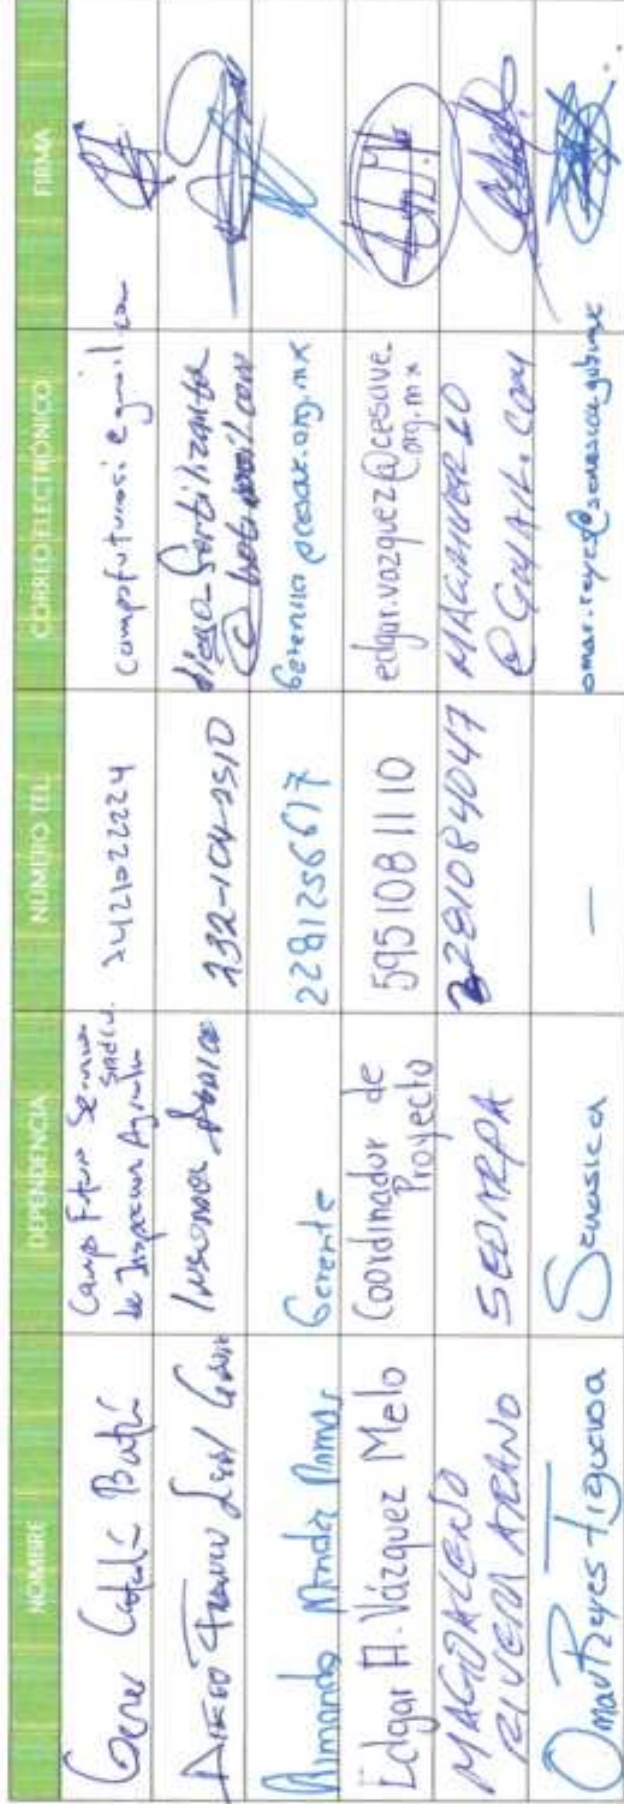 NOMBRE DEPENDENCIA NÚMERO TEL. CORREO ELECTRÓNICO FIRMA
Campo Futuro
de 2421022224 campofuturosi@gmail.com
Diego Franco Leal 232-104-2510 diego-fertilizante
@hotmail.com
Armando Méndez Ramos Gerente 2281256617 Gerencia pcesax.org.mx
Edgar A. Vázquez Melo Coordinador de
Proyecto 5951081110 edgar.vazquez@cesave.
org.mx
MAGDALENO
RIVERA ARANO SEDARPA 2281084047 MAGARIVER20
@GMAIL.COM
Omar Reyes Figueroa Senasica — omar.reyes@senasica.gob.mx